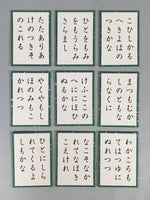 こひしかる
へきよはの
つきかな
ひとをもみ
をもうらみ
さらまし
たたありあ
けのつきそ
のこれる
まつもむか
しのともな
らなくに
けふここの
へににほひ
ぬるかな
やくやもし
ほのみもこ
かれつつ
わかころも
てはつゆに
ぬれつつ
なこそなか
れてなほき
こえけれ
ひとにしら
れてくるよ
しもかな